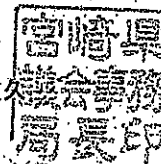 宮崎県
久議会事務
局長印